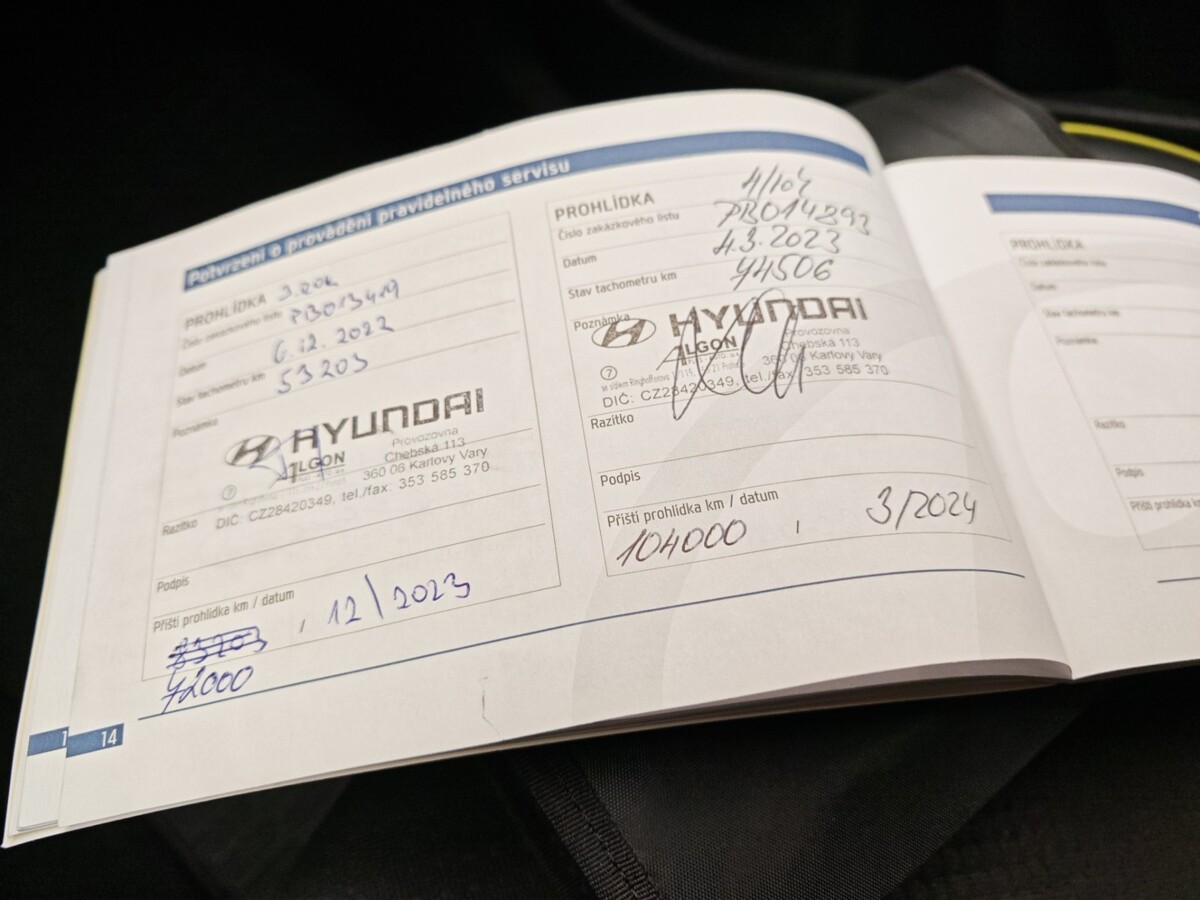 Potvrzení o provádění pravidelného servisu
PROHLÍDKA 3.rok
Číslo zakázkového listu PB013419
Datum 6.12.2022
Stav tachometru km 53203
Poznámka
HYUNDAI
ALGON
Provozovna
Chebská 113
360 06 Karlovy Vary
DIČ: CZ28420349, tel./fax: 353 585 370
Razítko
Podpis
Příští prohlídka km / datum
, 12/2023
72000
14
PROHLÍDKA 4/104
Číslo zakázkového listu PB014893
Datum 4.3.2023
Stav tachometru km 74506
Poznámka
HYUNDAI
ALGON
Provozovna
Chebská 113
360 06 Karlovy Vary
DIČ: CZ28420349, tel./fax: 353 585 370
Razítko
Podpis
Příští prohlídka km / datum
104000 , 3/2024
PROHLÍDKA
Číslo zakázkového listu
Datum
Stav tachometru km
Poznámka
Razítko
Podpis
Příští prohlídka km